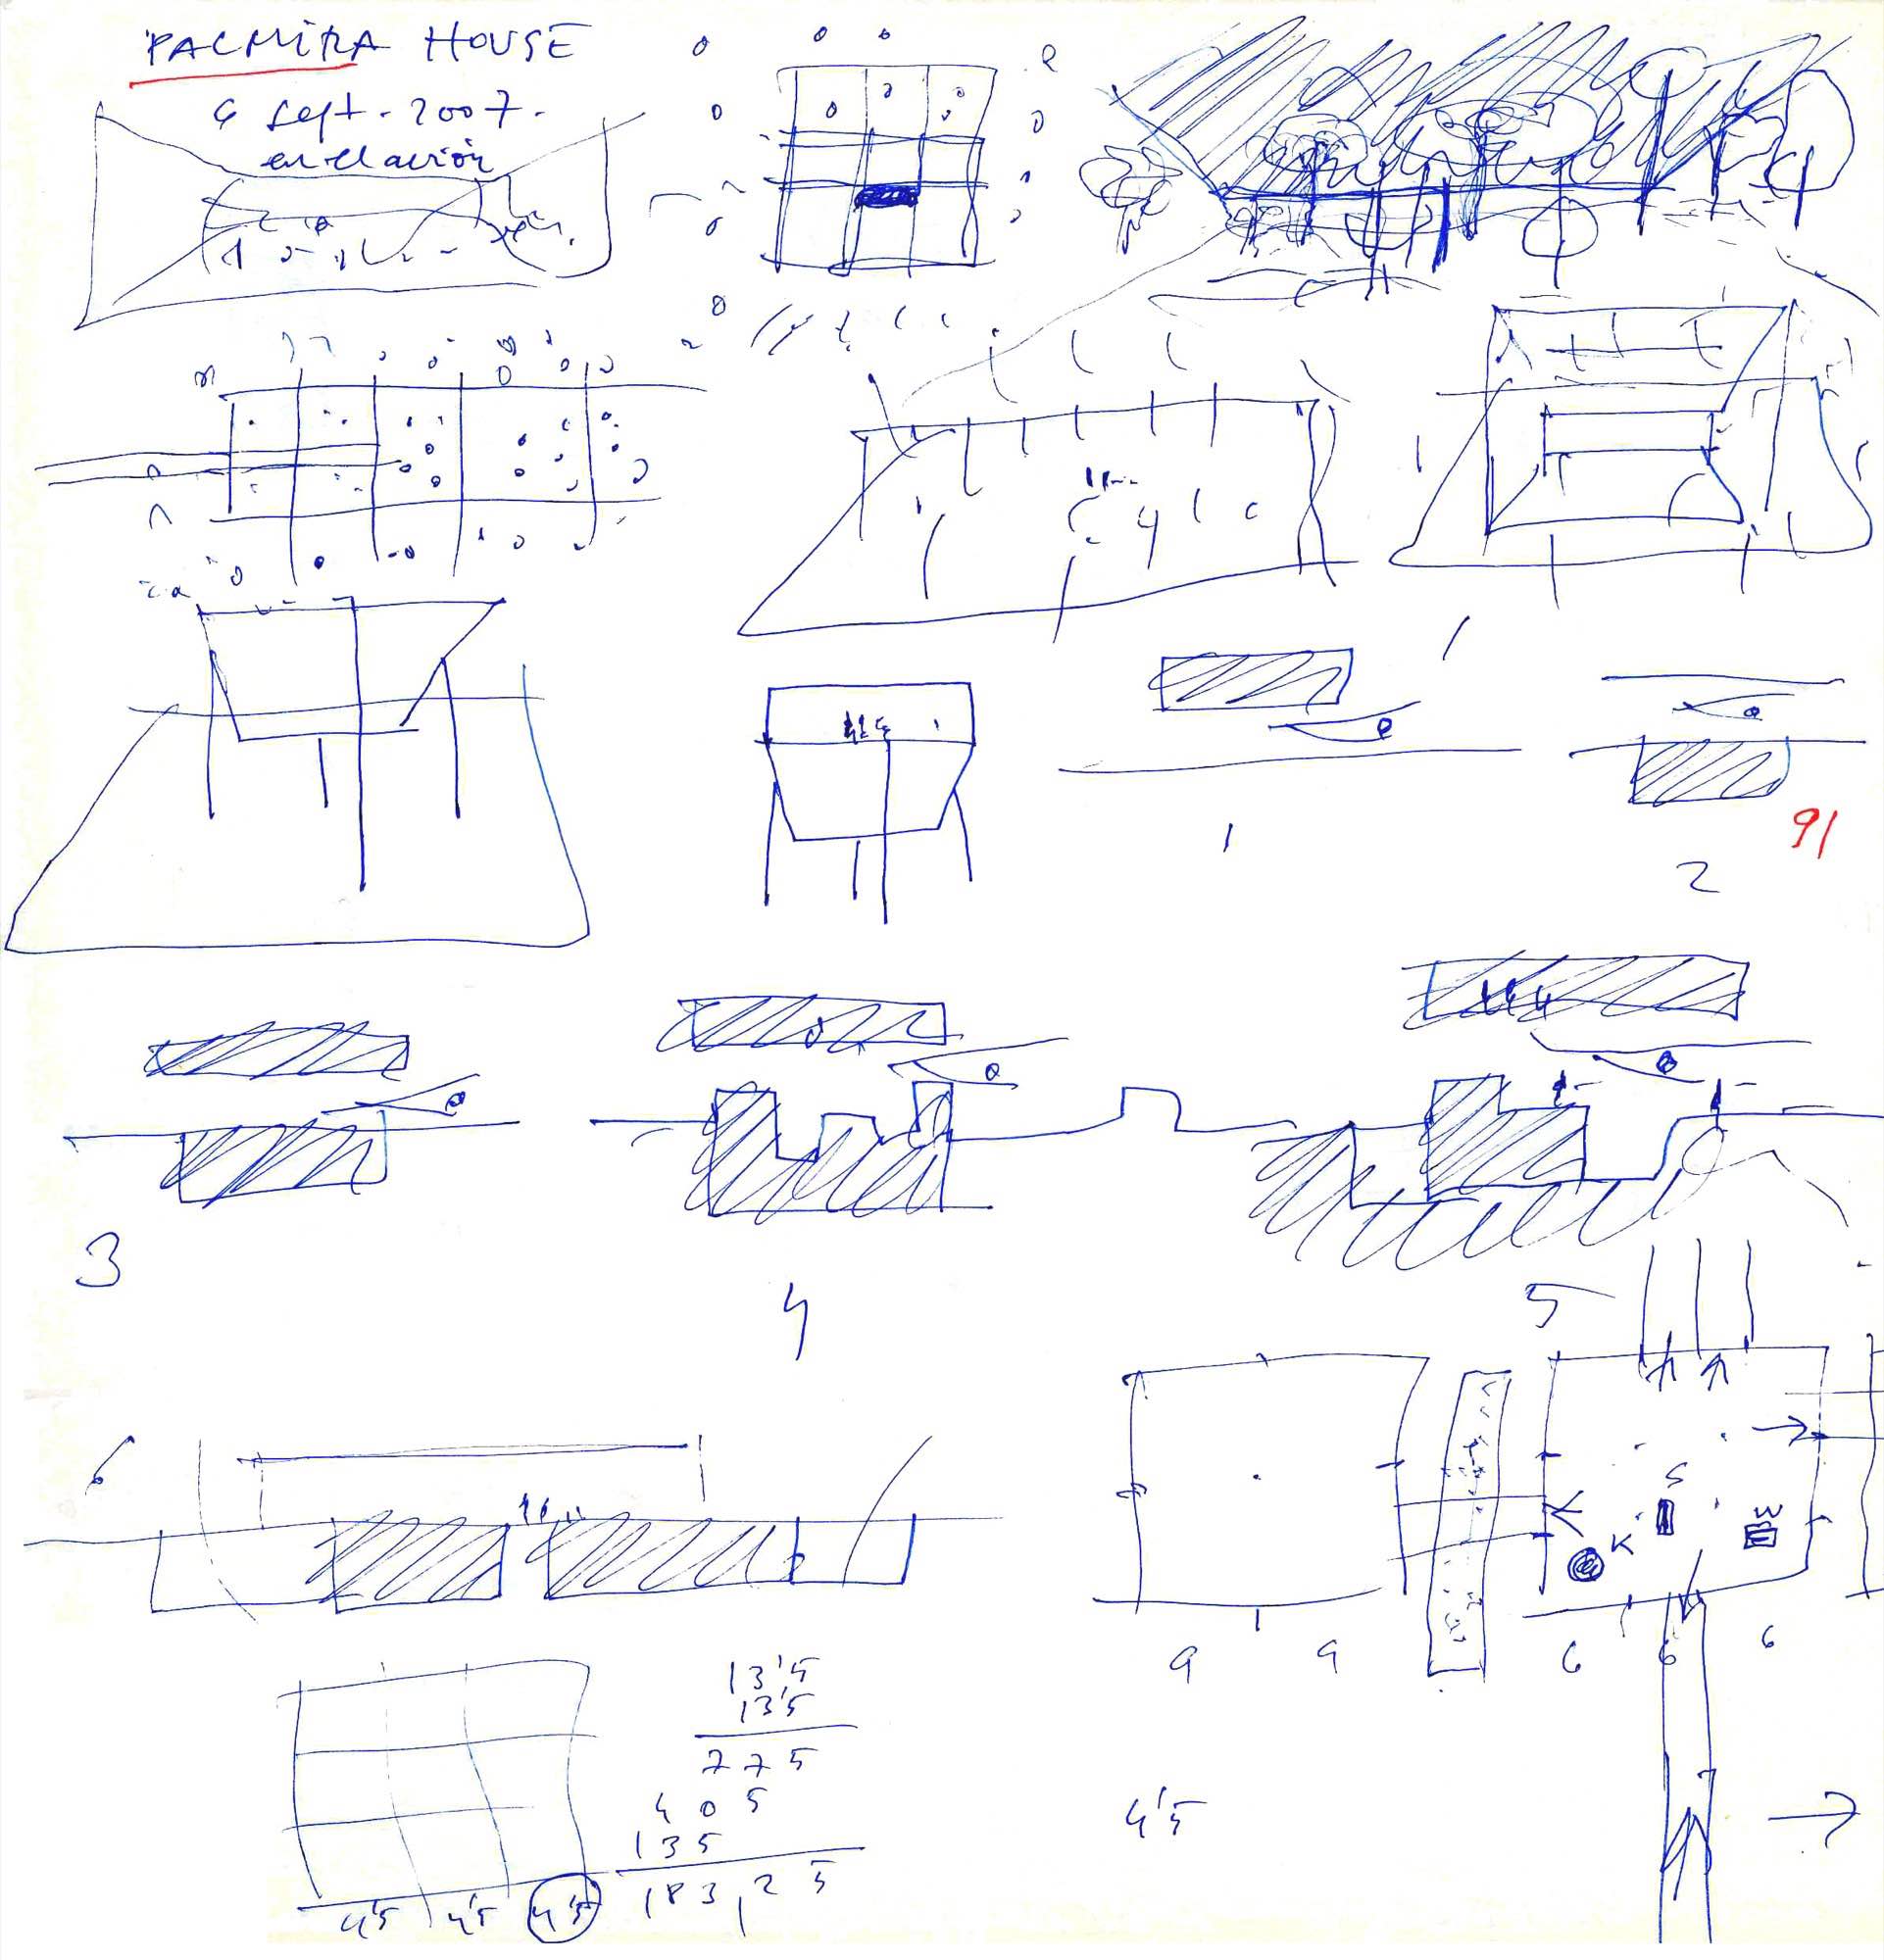 PALMIRA HOUSE
6 sept. 2007.
en el avión
1
2
91
3
4
5
6
S
K
9 9
6 6 6
13'5
13'5
775
405
135
183,25
4'5
4'5 4'5 4'5